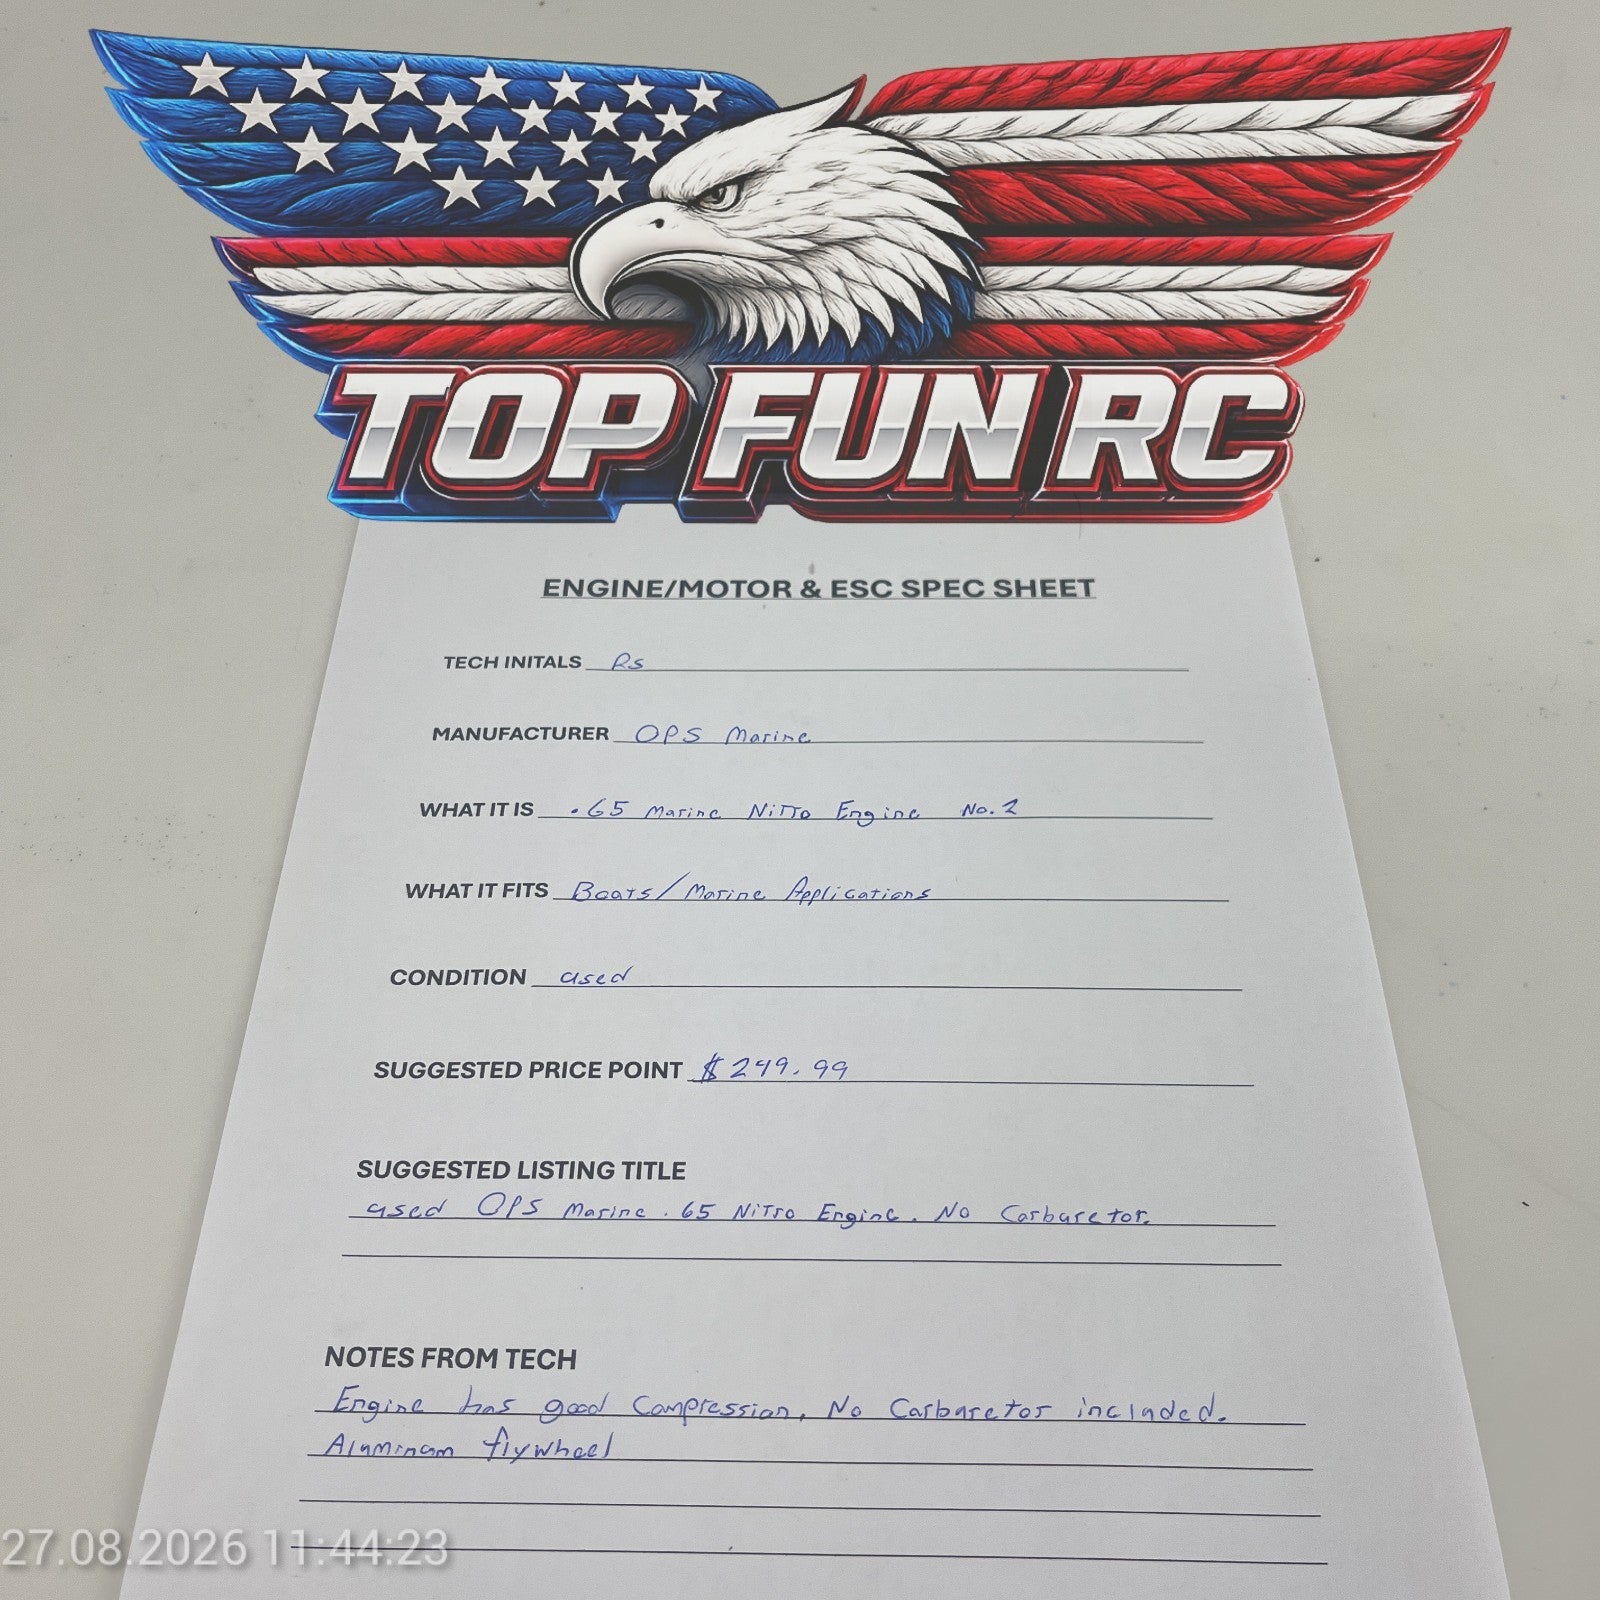 TOP FUN RC
ENGINE/MOTOR & ESC SPEC SHEET
TECH INITALS Rs
MANUFACTURER OPS Marine
WHAT IT IS .65 Marine Nitro Engine No. 2
WHAT IT FITS Boats/Marine Applications
CONDITION used
SUGGESTED PRICE POINT $249.99
SUGGESTED LISTING TITLE
used OPS Marine .65 Nitro Engine. No Carburetor.
NOTES FROM TECH
Engine has good Compression, No Carburetor included.
Aluminum flywheel
27.08.2026 11:44:23